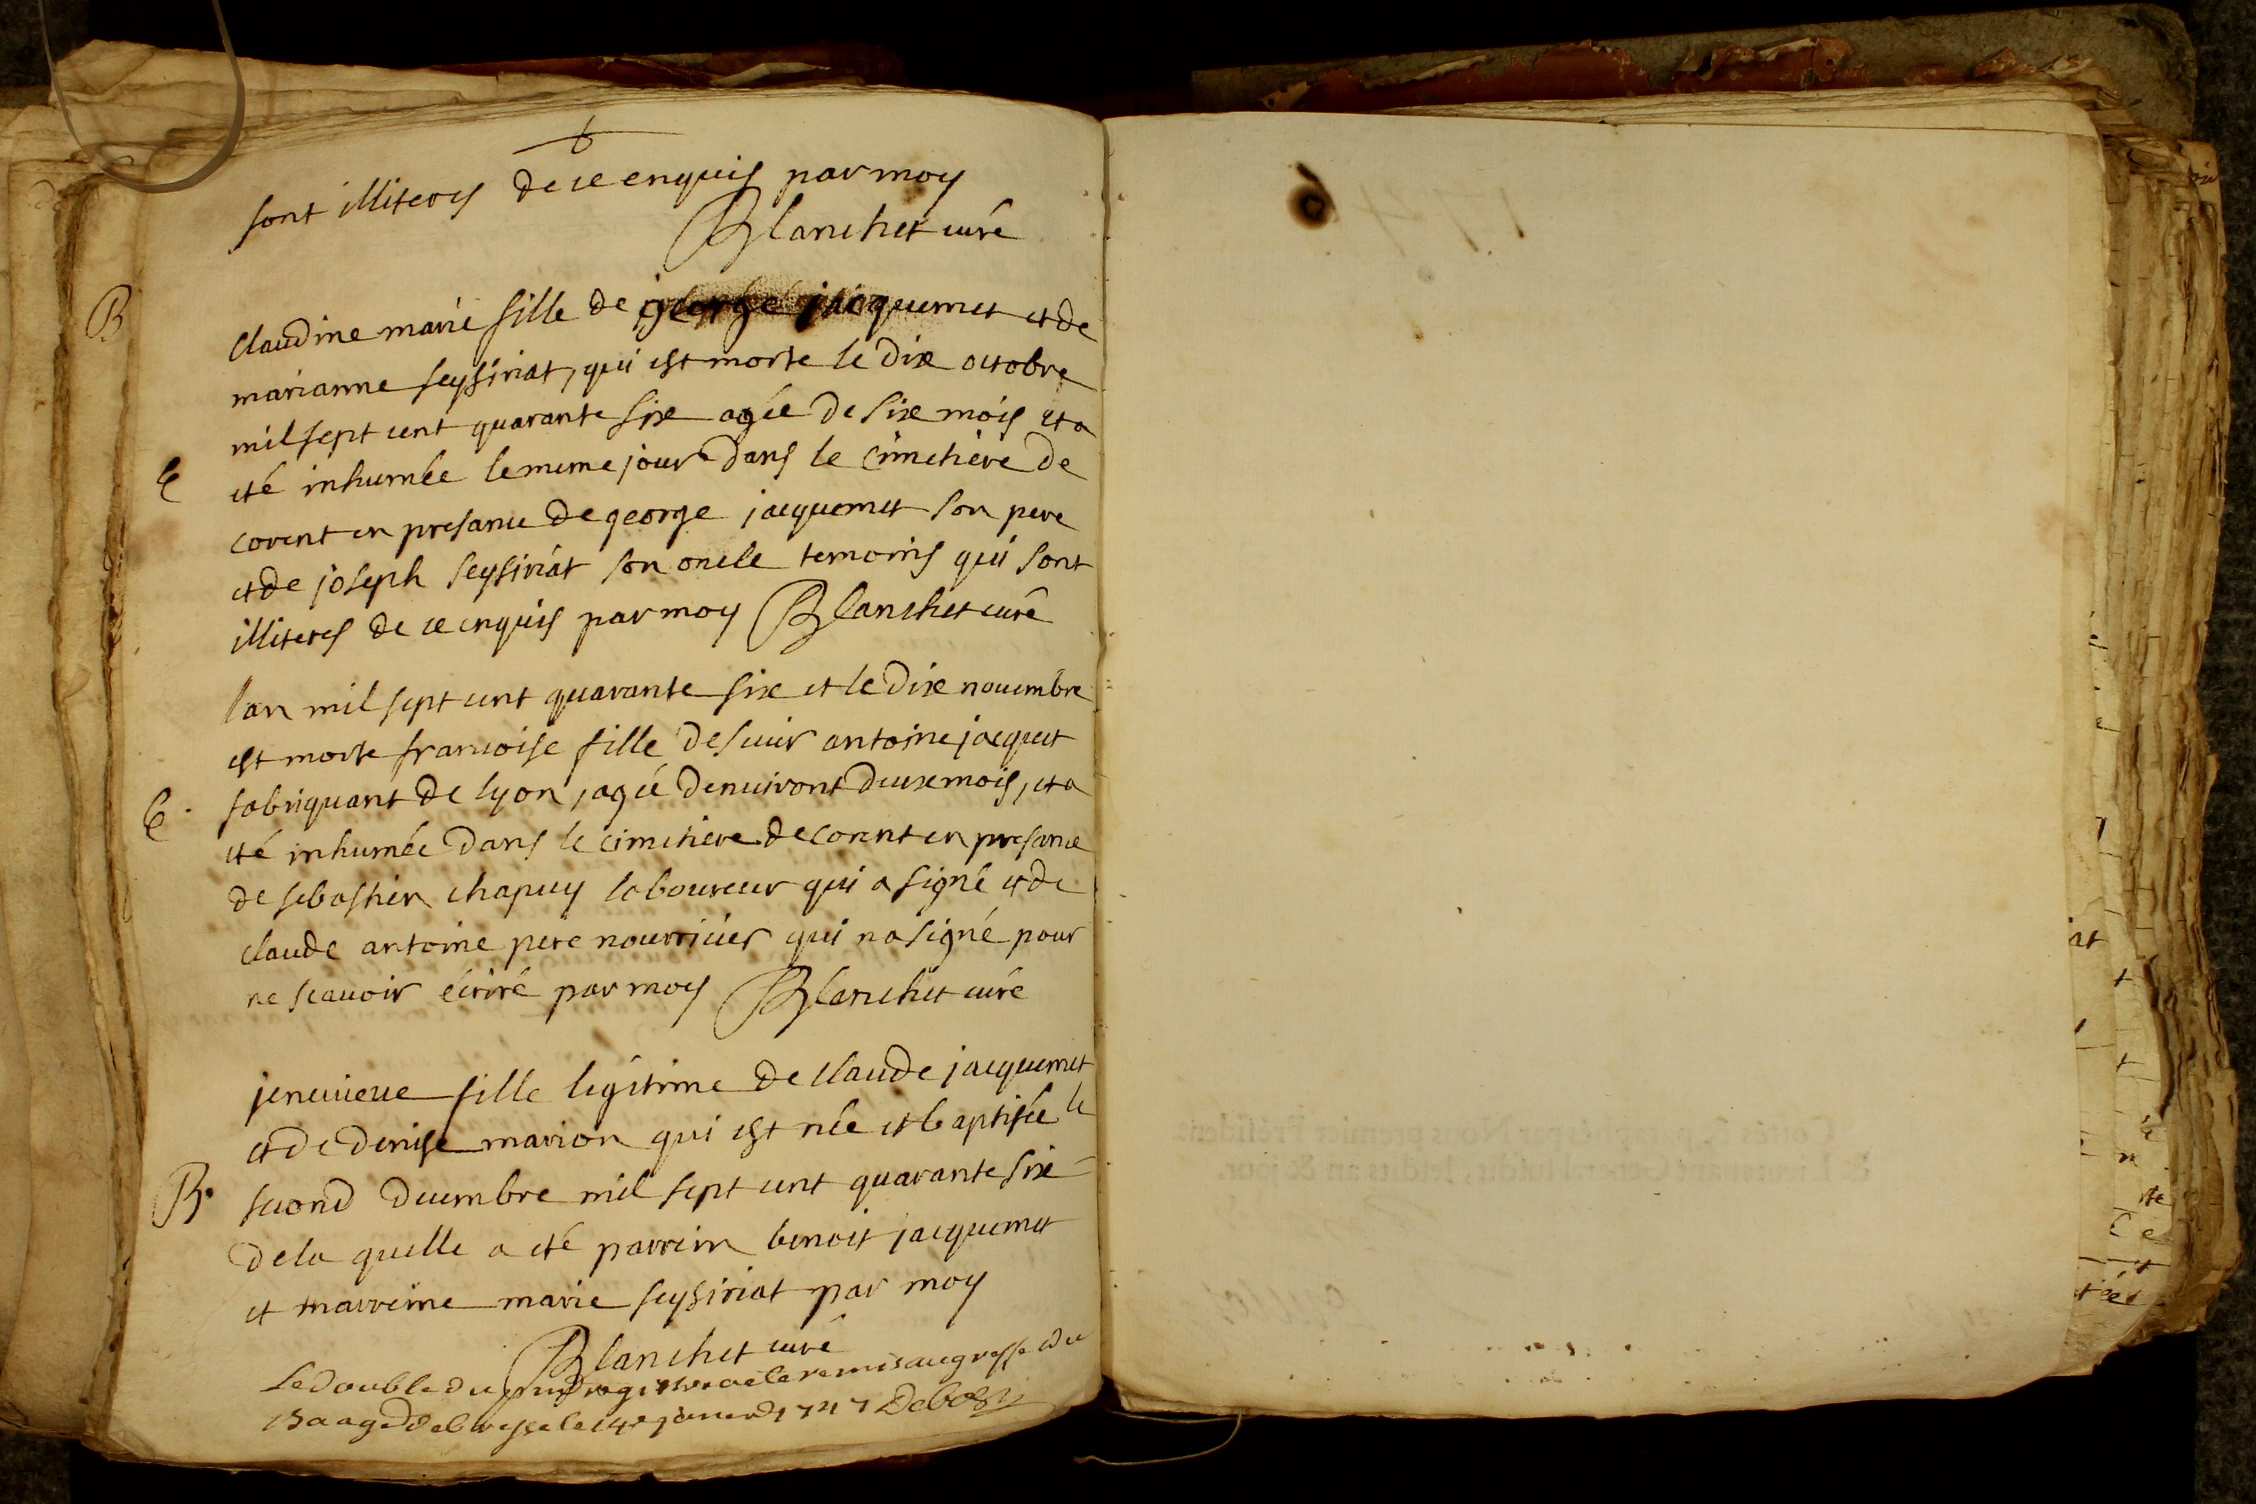 6
sont illiterés de ce enquis par moy
Blanchet curé
B
claudine marie fille de george jacquemet et de
marianne seysiriat, qui est morte le dix octobre
mil sept cent quarante six agée de six mois et a
été inhumée le meme jour dans le cimetière de
corent en presance de george jacquemet son pere
et de joseph seysiriat son oncle temoins qui sont
illiterés de ce enquis par moy Blanchet curé
lan mil sept cent quarante six et le dix nouembre
est morte francoise fille de sieur antoine jacquet
fabriquant de lyon, agée denuiront deux mois, et a
été inhumée dans le cimetiere de corent en presance
de sebastien chapuy laboureur qui a signé et de
claude antoine pere nourricier qui na signé pour
ne scauoir écriré par moy Blanchet curé
jeneuieue fille legitime de claude jacquemet
et de denise marion qui est née et baptisée le
B. second decembre mil sept cent quarante six
de la quelle a été parrein benoit jacquemet
et marreine marie seysiriat par moy
Blanchet curé
Le double du registre a été remis au greffe du
de bresse le 14e janvier 1747
Cottés & paraphés par Nous premier Président
& Lieutenant General susdit, lesdits an & jour.